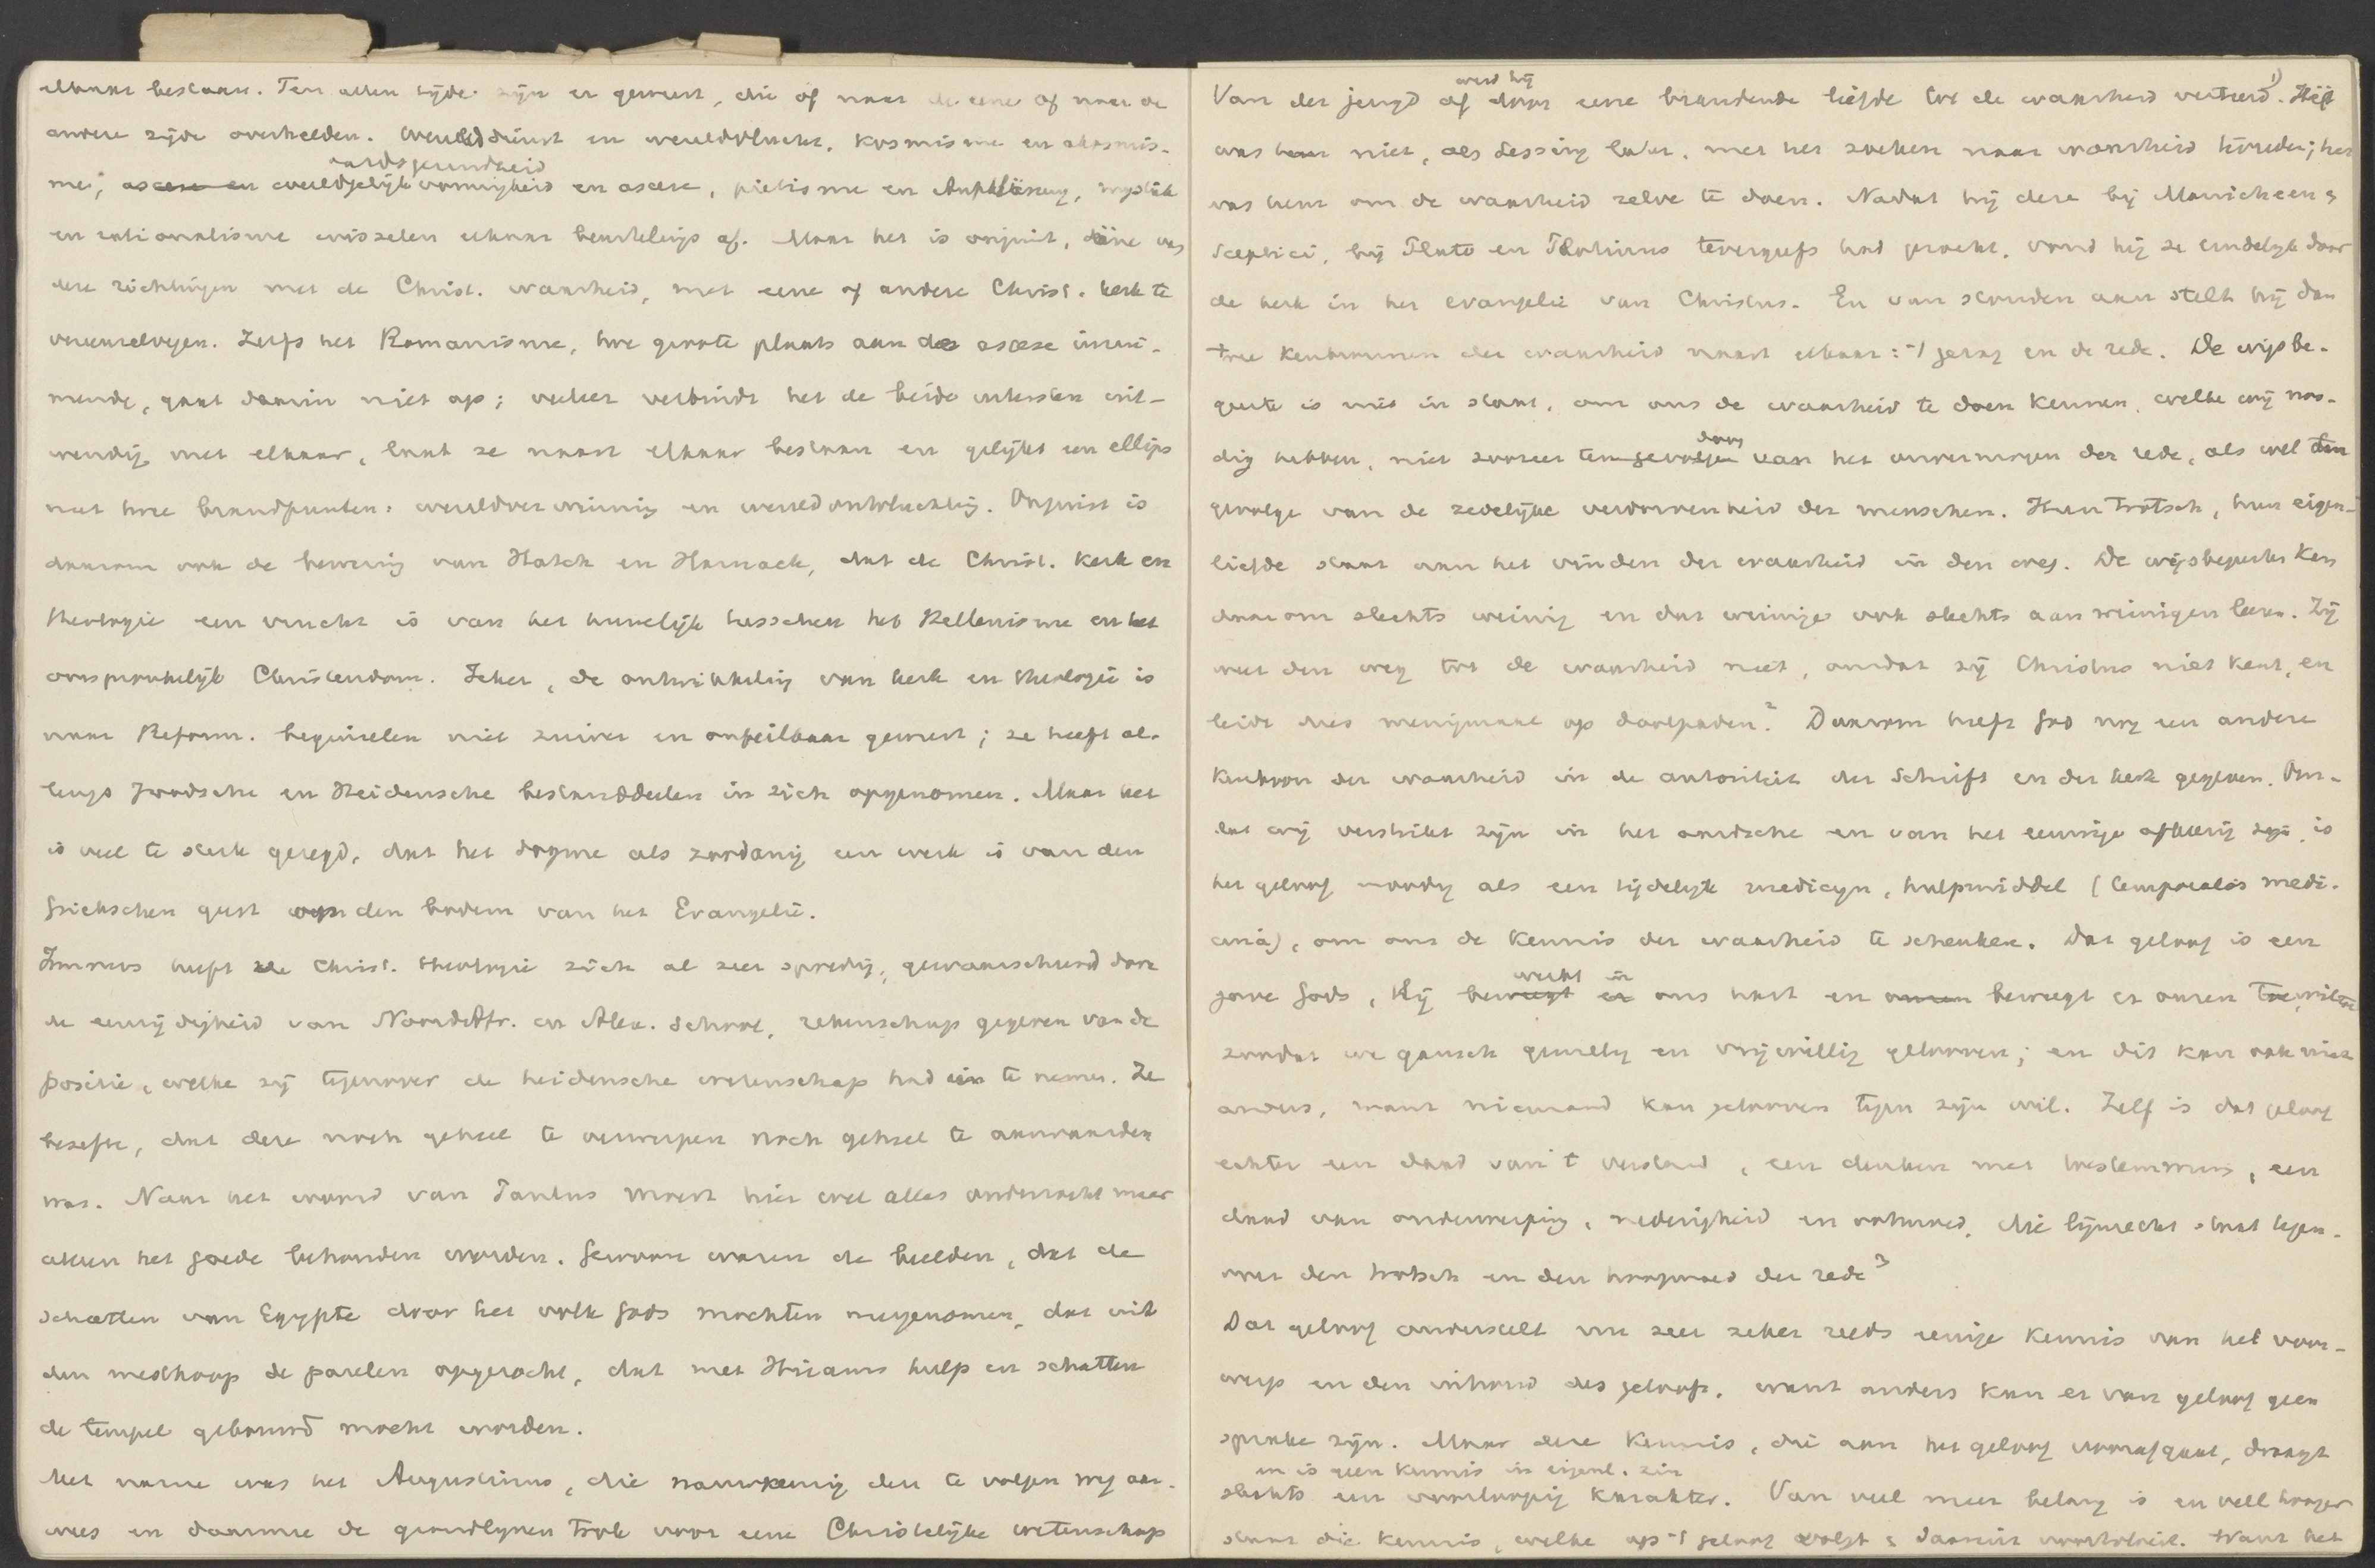 elkaar bestaan. Ten allen tijde zijn er geweest, die of naar de eene of naar de
andere zijde overhelden. Werelddienst en wereldvlucht, kosmisme en akosmis-
aardsgezindheid
me; ascese en wereldgelijkvormigheid en ascese, piëtisme en Aufklärung, mystiek
en rationalisme wisselen elkaar beurtelings af. Maar het is onjuist, ééne van
deze richtingen met de Christ. waarheid, met eene of andere Christ. kerk te
vereenzelvigen. Zelfs het Romanisme, hoe groote plaats aan de ascese inrui-
mende, gaat daarin niet op; veeleer verbindt het de beide uitersten uit-
wendig met elkaar, laat ze naast elkaar bestaan en gelijkt een ellips
met twee brandpunten: wereldverwinning en wereldontvluchting. Onjuist is
daarom ook de bewering van Hatch en Harnack, dat de Christ. kerk en
theologie een vrucht is van het huwelijk tusschen het Hellenisme en het
oorspronkelijk Christendom. Zeker, de ontwikkeling van kerk en theologie is
naar Reform. beginselen niet zuiver en onfeilbaar geweest; ze heeft al-
lengs Joodsche en Heidensche bestanddeelen in zich opgenomen. Maar het
is veel te sterk gezegd, dat het dogma als zoodanig een werk is van den
Griekschen geest op den bodem van het Evangelie.
Immers heeft de Christ. theologie zich al zeer spoedig, gewaarschuwd door
de eenzijdigheid van NoordAfr. en Alex. school, rekenschap gegeven van de
positie, welke zij tegenover de heidensche wetenschap had in te nemen. Ze
besefte, dat deze noch geheel te verwerpen noch geheel te aanvaarden
was. Naar het woord van Paulus moest hier wel alles onderzocht maar
alleen het goede behouden worden. Gewoon waren de beelden, dat de
schatten van Egypte door het volk Gods mochten meegenomen, dat uit
den mesthoop de parelen opgezocht, dat met Hirams hulp en schatten
de tempel gebouwd mocht worden.
Met name was het Augustinus, die nauwkeurig den te volgen weg aan-
wees en daarmee de grondlijnen trok voor eene Christelijke wetenschap
werd hij
Van der jeugd af door eene brandende liefde tot de waarheid verteerd 1). Het
was hem niet, als Lessing later, met het zoeken naar waarheid tevreden; het
was hem om de waarheid zelve te doen. Nadat hij deze bij Manicheen &
Sceptici, bij Plato en Plotinus tevergeefs had gezocht, vond hij ze eindelijk door
de kerk in het evangelie van Christus. En van stonden aan stelt hij dan
twee kenbronnen der waarheid naast elkaar: 't gezag en de rede. De wijsbe-
geerte is niet in staat, om ons de waarheid te doen kennen, welke wij noo-
door
dig hebben, niet zoozeer ten gevolge van het onvermogen der rede, als wel ten
gevolge van de zedelijke verdorvenheid der menschen. Hun trotsch, hun eigen-
liefde staat aan het vinden der waarheid in den weg. De wijsbegeerte kan
daarom slechts weinig en dat weinige ook slechts aan weinigen leeren. Zij
weet den weg tot de waarheid niet, omdat zij Christus niet kent, en
leidt dus menigmaal op doolpaden 2. Daarom heeft God nog een andere
kenbron der waarheid in de autoriteit der Schrift en der kerk gegeven. Om-
dat wij verstrikt zijn in het aardsche en van het eeuwige afkeerig zijn, is
het geloof noodig als een tijdelijk medicijn, hulpmiddel (temporalis medi-
cina), om ons de kennis der waarheid te schenken. Dat geloof is een
werkt in
gave Gods, Hij beweegt er ons hart en beweegt er onzen wil toe
zoodat we gansch gewillig en vrijwillig gelooven; en dit kan ook niet
anders, want niemand kan gelooven tegen zijn wil. Zelf is dat geloof
echter een daad van 't verstand, een denken met toestemming, een
daad van onderwerping, nederigheid en ootmoed, die lijnrecht staat tegen-
over den trotsch en den hoogmoed der rede 3
Dat geloof onderstelt nu zeer zeker reeds eenige kennis van het voor-
werp en den inhoud des geloofs, want anders kan er van geloof geen
sprake zijn. Maar deze kennis, die aan het geloof voorafgaat, draagt
en is geen kennis in eigenl. zin
slechts een voorloopig karakter. Van veel meer belang is en veel hooger
staat die kennis, welke op 't geloof volgt & daaruit voortvloeit. Want het